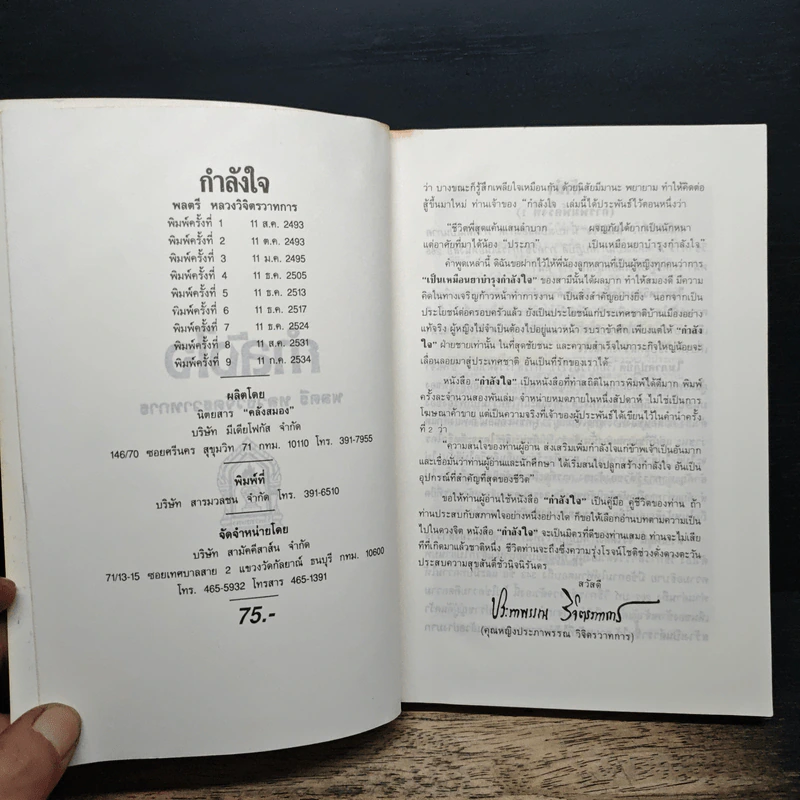 กำลังใจ
พลตรี หลวงวิจิตรวาทการ
พิมพ์ครั้งที่ 1 11 ส.ค. 2493
พิมพ์ครั้งที่ 2 11 ต.ค. 2493
พิมพ์ครั้งที่ 3 11 ม.ค. 2495
พิมพ์ครั้งที่ 4 11 ธ.ค. 2505
พิมพ์ครั้งที่ 5 11 ธ.ค. 2513
พิมพ์ครั้งที่ 6 11 ธ.ค. 2517
พิมพ์ครั้งที่ 7 11 ธ.ค. 2524
พิมพ์ครั้งที่ 8 11 ส.ค. 2531
พิมพ์ครั้งที่ 9 11 ก.ค. 2534
ผลิตโดย
นิตยสาร "คลังสมอง"
บริษัท มีเดียโฟกัส จำกัด
146/70 ซอยศรีนคร สุขุมวิท 71 กทม. 10110 โทร. 391-7955
พิมพ์ที่
บริษัท สารมวลชน จำกัด โทร. 391-6510
จัดจำหน่ายโดย
บริษัท สามัคคีสาส์น จำกัด
71/13-15 ซอยเทศบาลสาย 2 แขวงวัดกัลยาณ์ ธนบุรี กทม. 10600
โทร. 465-5932 โทรสาร 465-1391
75.-
ว่า บางขณะก็รู้สึกเพลียใจเหมือนกัน ด้วยนิสัยมีมานะ พยายาม ทำให้คิดต่อ
สู้ขึ้นมาใหม่ ท่านเจ้าของ "กำลังใจ" เล่มนี้ได้ประพันธ์ไว้ตอนหนึ่งว่า
"ชีวิตพี่สุดแค้นแสนลำบาก ผจญภัยได้ยากเป็นนักหนา
แต่อาศัยที่มาได้น้อง "ประภา" เป็นเหมือนยาบำรุงกำลังใจ"
คำพูดเหล่านี้ ดิฉันขอฝากไว้ให้พี่น้องลูกหลานที่เป็นผู้หญิงทุกคนว่าการ
"เป็นเหมือนยาบำรุงกำลังใจ" ของสามีนั้นได้ผลมาก ทำให้สมองดี มีความ
คิดในทางเจริญก้าวหน้าทำการงาน เป็นสิ่งสำคัญอย่างยิ่ง นอกจากเป็น
ประโยชน์ต่อครอบครัวแล้ว ยังเป็นประโยชน์แก่ประเทศชาติบ้านเมืองอย่าง
แท้จริง ผู้หญิงไม่จำเป็นต้องไปอยู่แนวหน้า รบราข้าศึก เพียงแต่ให้ "กำลัง
ใจ" ฝ่ายชายเท่านั้น ในที่สุดชัยชนะ และความสำเร็จในภาระกิจใหญ่น้อยจะ
เลื่อนลอยมาสู่ประเทศชาติ อันเป็นที่รักของเราได้
หนังสือ "กำลังใจ" เป็นหนังสือที่ทำสถิติในการพิมพ์ได้ดีมาก พิมพ์
ครั้งละจำนวนสองพันเล่ม จำหน่ายหมดภายในหนึ่งสัปดาห์ ไม่ใช่เป็นการ
โฆษณาค้าขาย แต่เป็นความจริงที่เจ้าของผู้ประพันธ์ได้เขียนไว้ในคำนำครั้ง
ที่ 2 ว่า
"ความสนใจของท่านผู้อ่าน ส่งเสริมเพิ่มกำลังใจแก่ข้าพเจ้าเป็นอันมาก
และเชื่อมั่นว่าท่านผู้อ่านและนักศึกษา ได้เริ่มสนใจปลูกสร้างกำลังใจ อันเป็น
อุปกรณ์ที่สำคัญที่สุดของชีวิต"
ขอให้ท่านผู้อ่านใช้หนังสือ "กำลังใจ" เป็นคู่มือ คู่ชีวิตของท่าน ถ้า
ท่านประสบกับสภาพใจอย่างหนึ่งอย่างใด ก็ขอให้เลือกอ่านบทตามความเป็น
ไปในดวงจิต หนังสือ "กำลังใจ" จะเป็นมิตรที่ดีของท่านเสมอ ท่านจะไม่เสีย
ทีที่เกิดมาแล้วชาติหนึ่ง ชีวิตท่านจะถึงซึ่งความรุ่งโรจน์โชติช่วงดั่งดวงตะวัน
ประสบความสุขสันต์ชั่วนิจนิรันดร
สวัสดี
ประภาพรรณ วิจิตรวาทการ
(คุณหญิงประภาพรรณ วิจิตรวาทการ)